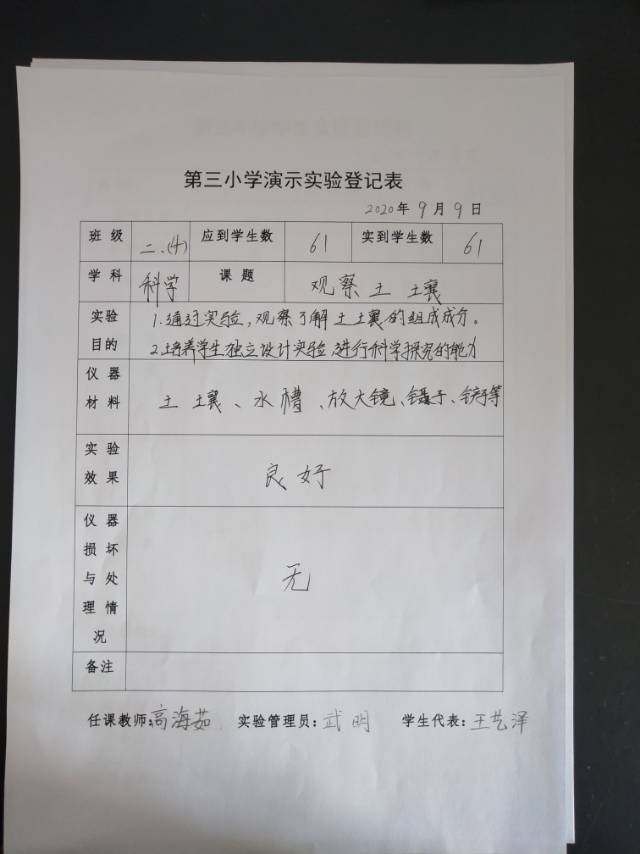 第三小学演示实验登记表
2020年9月9日
班级 二.(4) 应到学生数 61 实到学生数 61
学科 科学 课题 观察土 壤
实验目的 1.通过实验,观察了解土土壤的组成成分。
2.培养学生独立设计实验,进行科学探究的能力
仪器材料 土 壤、水槽、放大镜、镊子、铲子等
实验效果 良好
仪器损坏与处理情况 无
备注
任课教师:高海茹 实验管理员:武明 学生代表:王艺泽